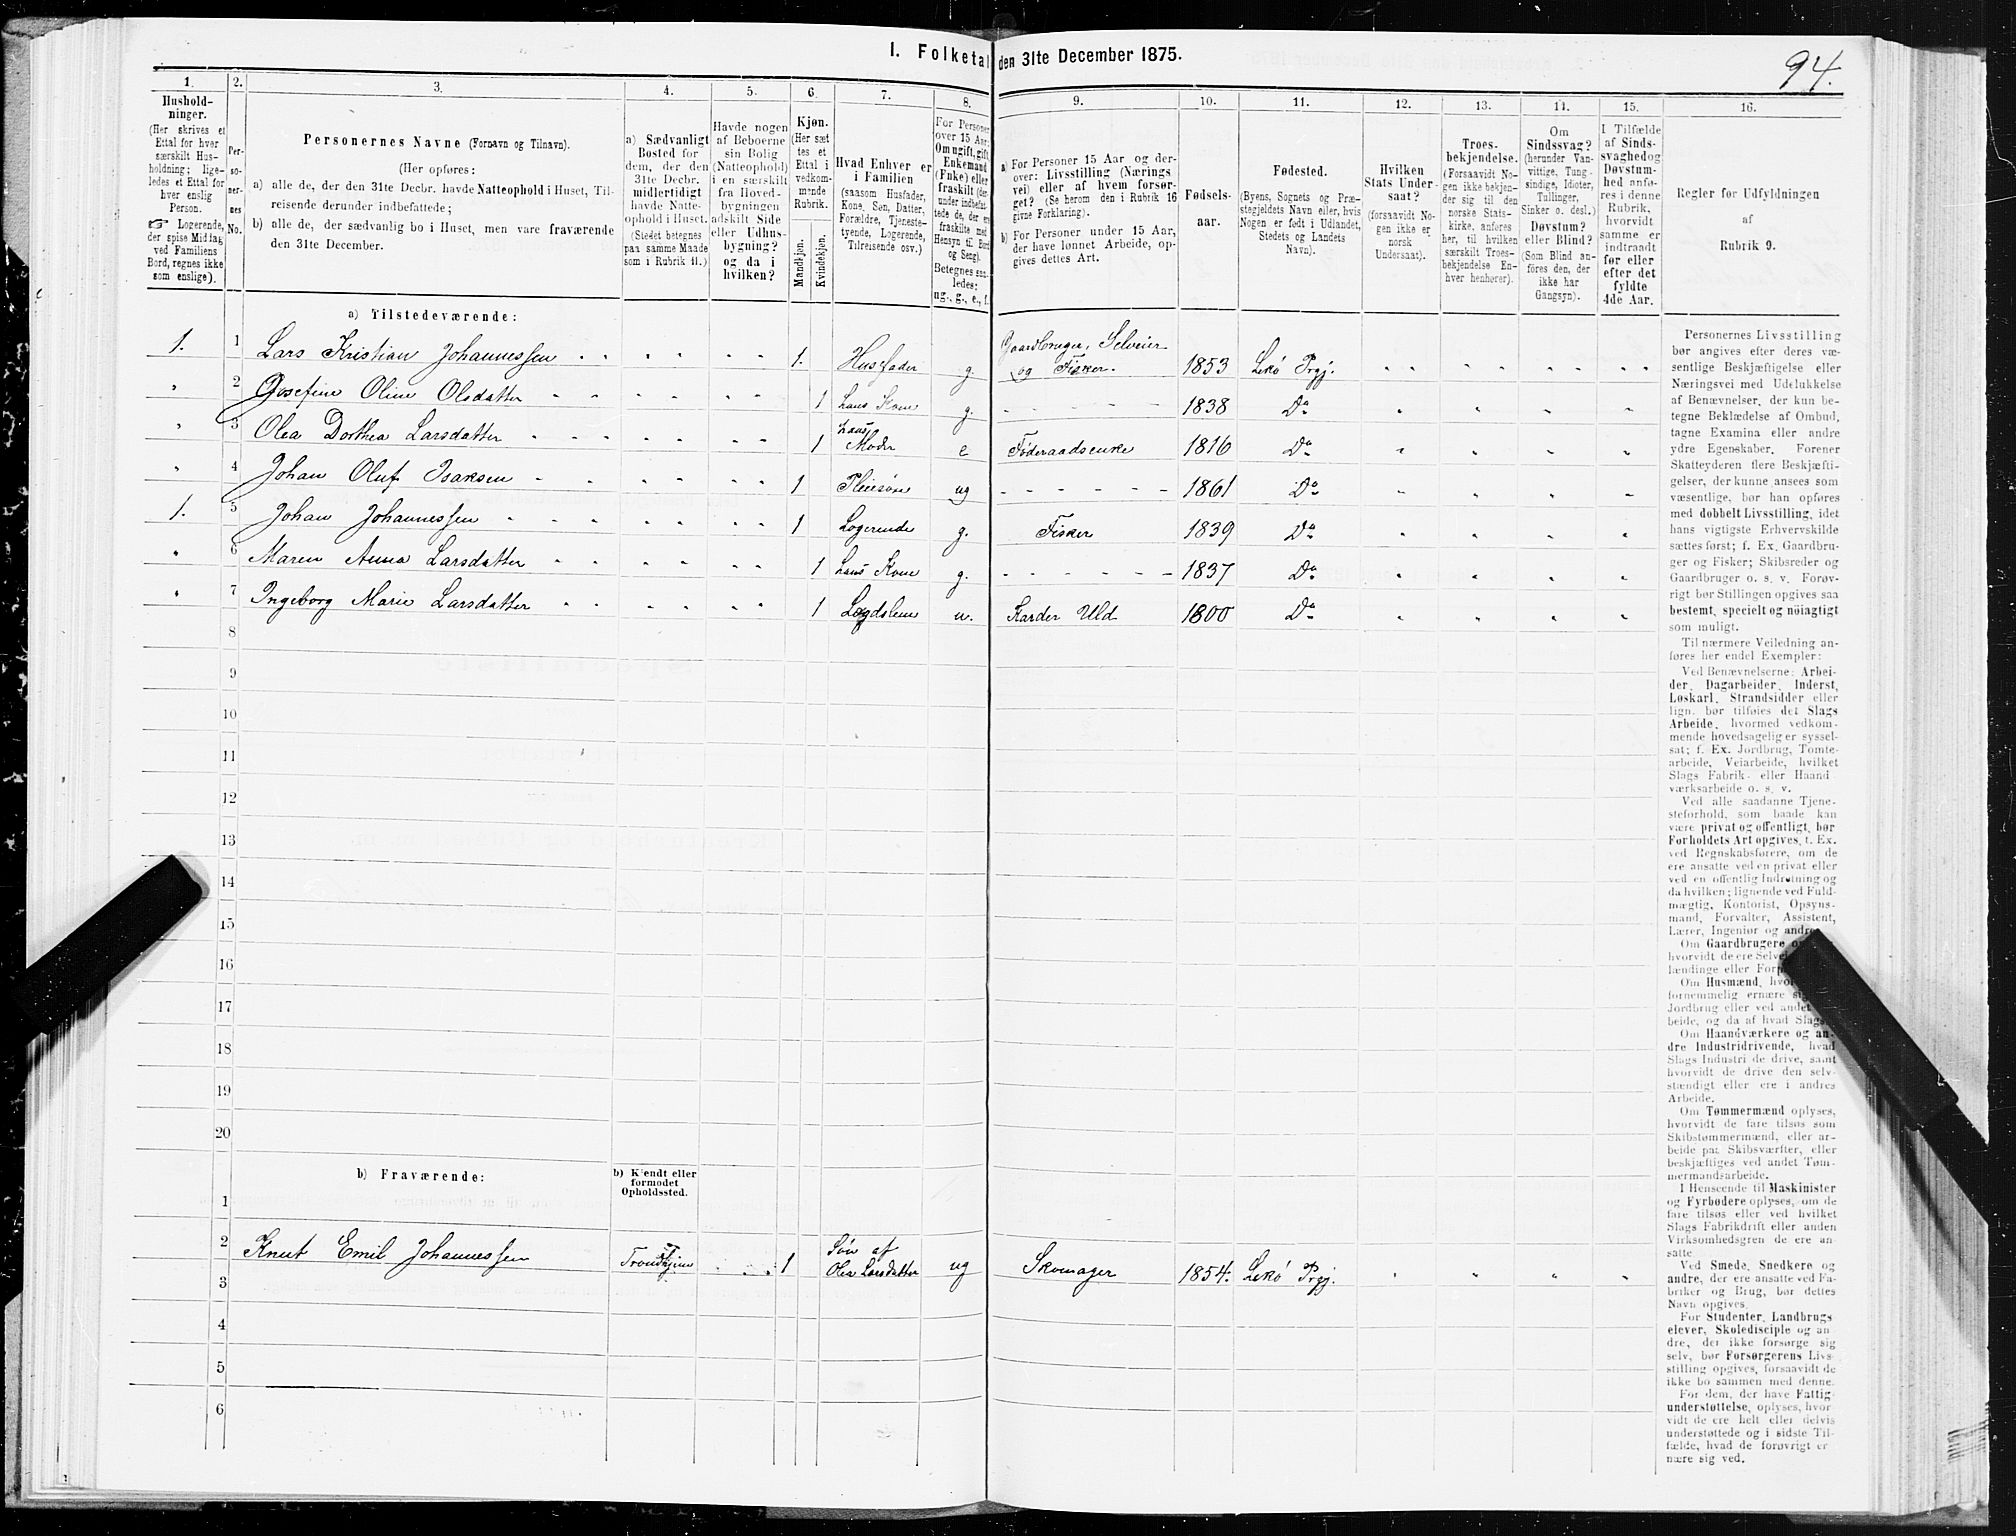 I. Folketal den 31te December 1875.
94.
1. 2. 3. 4. 5. 6. 7. 8. 9. 10. 11. 12. 13. 14. 15. 16.
Hushold-
ninger.
(Her skrives et
Ettal for hver
særskilt Hus-
holdning; lige-
ledes et Ettal for
hver enslig
Person.
☞ Logerende,
der spise Middag
ved Familiens
Bord, regnes ikke
som enslige).
Per-
so-
ner-
nes
No.
Personernes Navne (Fornavn og Tilnavn).
(Her opføres:
a) alle de, der den 31te Decbr. havde Natteophold i Huset, Til-
reisende derunder indbefattede;
b) alle de, der sædvanlig bo i Huset, men vare fraværende
den 31te December.
a) Sædvanligt
Bosted for
dem, der den
31te Decbr.
midlertidigt
havde Natte-
ophold i Huset.
(Stedet betegnes
paa samme Maade
som i Rubrik 11.)
Havde nogen
af Beboerne
sin Bolig
(Natteophold)
i en særskilt
fra Hoved-
bygningen
adskilt Side
eller Udhus-
bygning?
og da i
hvilken?
Kjøn.
(Her sæt
tes et
Ettal i
vedkom-
mende
Rubrik.
Mandkjøn.
Kvindekjøn.
Hvad Enhver er
i Familien
(saasom Husfader,
Kone, Søn, Datter,
Forældre, Tjeneste-
tyende, Logerende,
Tilreisende osv.)
For Personer
over 15 Aar:
Om ugift, gift,
Enkemand
(Enke) eller
fraskilt (der-
under indbefat-
tede de, der er
fraskilte med
Hensyn til Bord
og Seng).
Betegnes saa-
ledes:
ug., g., e., f.
a) For Personer 15 Aar og der-
over: Livsstilling (Nærings
vei) eller af hvem forsør-
get? (Se herom den i Rubrik 16
givne Forklaring).
b) For Personer under 15 Aar,
der have lønnet Arbeide, op-
gives dettes Art.
Fødsels-
aar.
Fødested.
(Byens, Sognets og Præ-
stegjeldets Navn eller, hvis
Nogen er født i Udlandet,
Stedets og Landets
Navn).
Hvilken
Stats Under-
saat?
(forsaavidt No-
gen ikke er
norsk
Undersaat).
Troes-
bekjendelse.
(Forsaavidt No-
gen ikke bekjen-
der sig til den
norske Stats-
kirke, anføres
her, til hvilken
særskilt Troes-
bekjendelse En-
hver henhører).
Om
Sindssvag?
(herunder Van-
vittige, Tung-
sindige, Idioter,
Tullinger,
Sinker o. desl.)
Døvstum?
eller Blind?
(Som Blind an-
føres den, der
ikke har
Gangsyn).
I Tilfælde
af Sinds-
svaghed og
Døvstum-
hed anfø-
res i denne
Rubrik,
hvorvidt
samme er
indtraadt
før eller
efter det
fyldte
4de Aar.
Regler for Udfyldningen
af
Rubrik 9.
a) Tilstedeværende:
1. 1 Lars Kristian Johannessen 1. Husfader g. Gaardbruger, Selveier og Fisker. 1853 Lekø Prgj.
2 Josefine Oline Olsdatter 1 Lars' Kone g. 1838 Do
3 Olea Dorthea Larsdatter 1 Lars' Moder e Føderaadsenke 1816 Do
4 Johan Oluf Isaksen 1 Pleiesøn ug 1861 Do
1. 5 Johan Johannessen 1 Logerende g. Fisker 1839 Do
6 Maren Anna Larsdatter 1 Hans Kone g. 1837 Do
7 Ingeborg Marie Larsdatter 1 Lægdslem u. Karder Uld 1800 Do
8
9
10
11
12
13
14
15
16
17
18
19
20
b) Fraværende:
b) Kjendt eller
formodet
Opholdssted.
1
2 Knut Emil Johannessen Trondhjem 1 Søn af Olea Larsdatter ug Skomager 1854. Lekø Prgj.
3
4
5
6
Personernes Livsstilling
bør angives efter deres væ-
sentlige Beskjæftigelse eller
Næringsvei med Udelukkelse
af Benævnelser, der kun be-
tegne Beklædelse af Ombud,
tagne Examina eller andre
ydre Egenskaber. Forener
Skatteyderen flere Beskjæfti-
gelser, der kunne ansees som
væsentlige, bør han opføres
med dobbelt Livsstilling, idet
hans vigtigste Erhvervskilde
sættes først; f. Ex. Gaardbru-
ger og Fisker; Skibsreder og
Gaardbruger o. s. v. Forøv-
rigt bør Stillingen opgives saa
bestemt, specielt og nöiagtigt
som muligt.
Til nærmere Veiledning an-
føres her endel Exempler:
Ved Benævnelserne: Arbei-
der, Dagarbeider, Inderst,
Løskarl, Strandsidder eller
lign. bør tilføies det Slags
Arbeide, hvormed vedkom-
mende hovedsagelig er syssel-
sat; f. Ex. Jordbrug, Tomte-
arbeide, Veiarbeide, hvilket
Slags Fabrik- eller Haand-
værksarbeide o. s. v.
Ved alle saadanne Tjene-
steforhold, som baade kan
være privat og offentligt, bør
Forholdets Art opgives, f. Ex.
ved Regnskabsførere, om de
ere ansatte ved en privat eller
ved en offentlig Indretning og
da hvilken; lignende ved Fuld-
mægtig, Kontorist, Opsyns-
mand, Forvalter, Assistent,
Lærer, Ingeniør og andre
Om Gaardbrugere
hvorvidt de ere
lændinge eller
Om Husmænd,
fornemmelig ernære
Jordbrug eller ved andet
beide, og da af hvad Slags
Om Haandværkere og an-
dre Industridrivende, hvad
Slags Industri de drive, samt
hvorvidt de drive den selv-
stændigt eller ere i andres
Arbeide.
Om Tømmermænd oplyses,
hvorvidt de fare tilsøs som
Skibstømmermænd, eller ar-
beide paa Skibsværfter, eller
beskjæftiges ved andet Tøm-
mermandsarbeide.
I Henseende til Maskinister
og Fyrbødere oplyses, om de
fare tilsøs eller ved hvilket
Slags Fabrikdrift eller anden
Virksomhedsgren de ere an-
satte.
Ved Smede, Snedkere og
andre, der ere ansatte ved Fa-
briker og Brug, bør dettes
Navn opgives.
For Studenter, Landbrugs-
elever, Skoledisciple og an-
dre, der ikke forsørge sig
selv, bør Forsørgerens Livs-
stilling opgives, forsaavidt de
ikke bo sammen med denne.
For dem, der have Fattig-
understøttelse, oplyses, hvor-
vidt de ere helt eller delvis
understøttede og i sidste Til-
fælde, hvad de forøvrigt er-
nære sig ved.